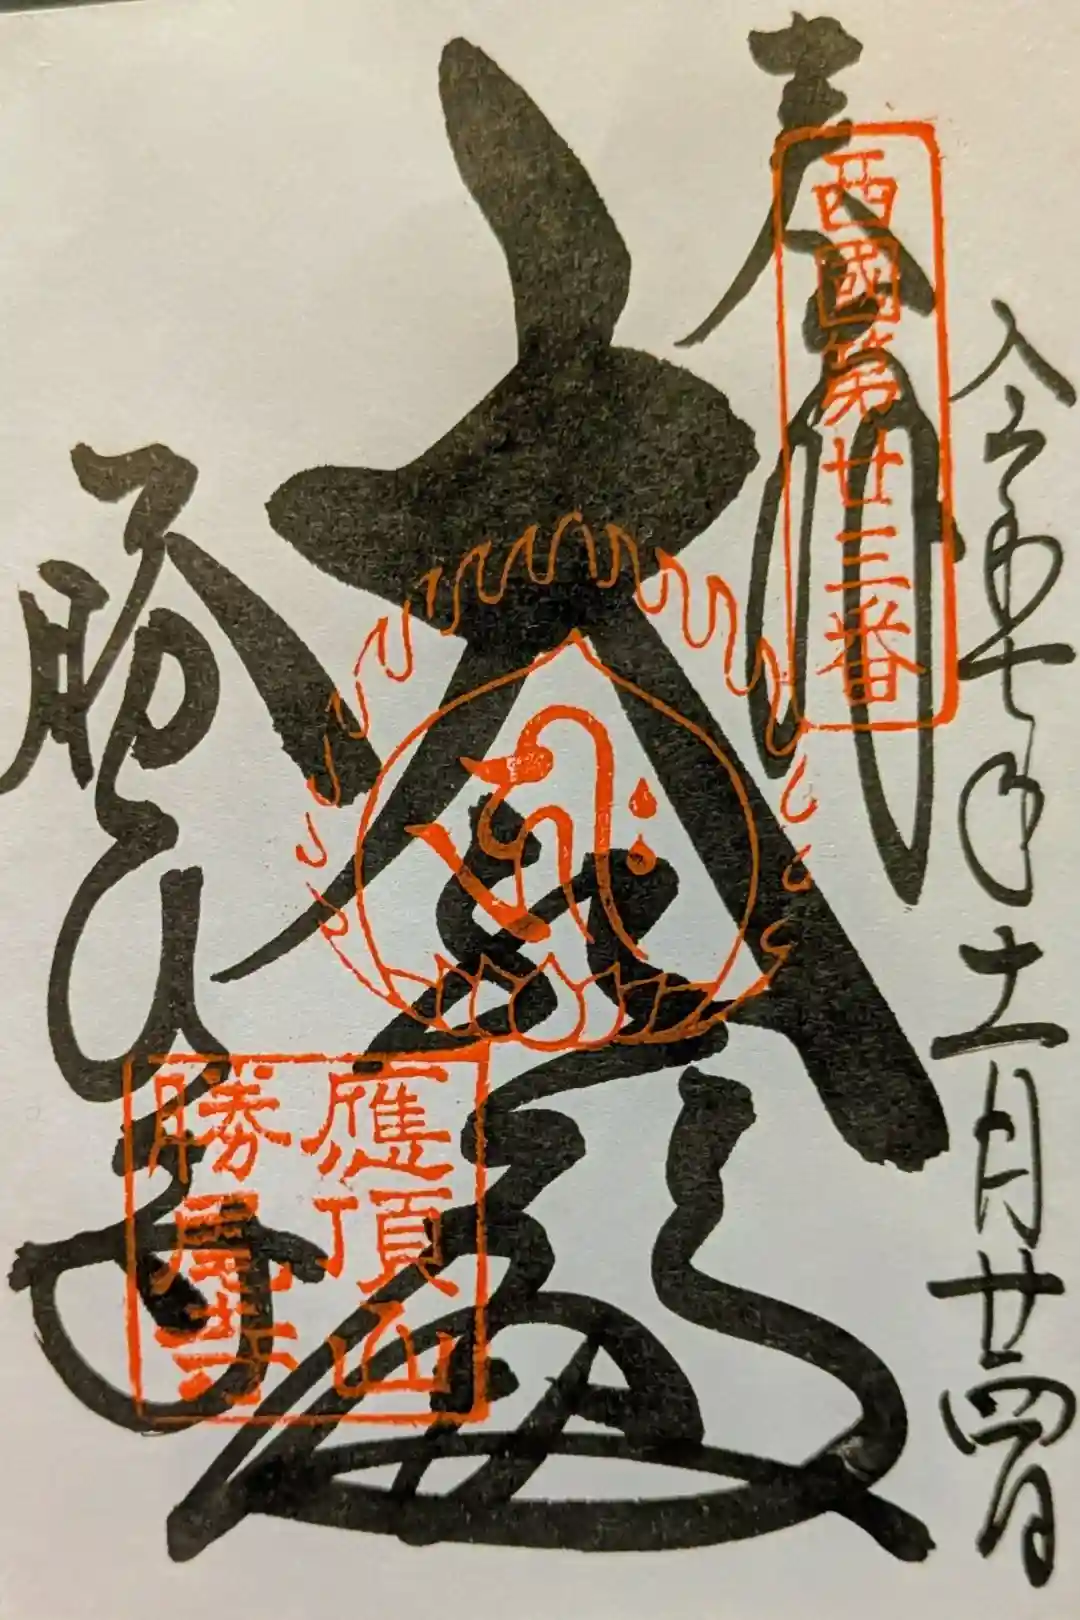 令和七年十一月廿四日
奉拝
西國第廿三番
大悲殿
應頂山
勝尾寺
勝尾寺